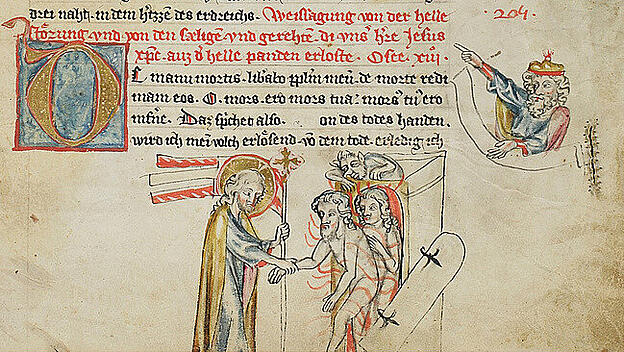 drei naht. in dem h'tzzen des erdreichs. Weissagung von der helle
204.
störung. vnd von den sæligen vnd gerehten. di vns' h're Jesus
xp̄c. auz d' helle panden erloste. Osee. xiij.
DE manu mortis. libabo pplm meū. de morte redi
mam eos. O. mors. ero mors tua. mors' tu' ero
inf'ne. Daz sp'chet also. on des todes handen.
wird ich mein volch erlösend. vō dem tode. erledig ich